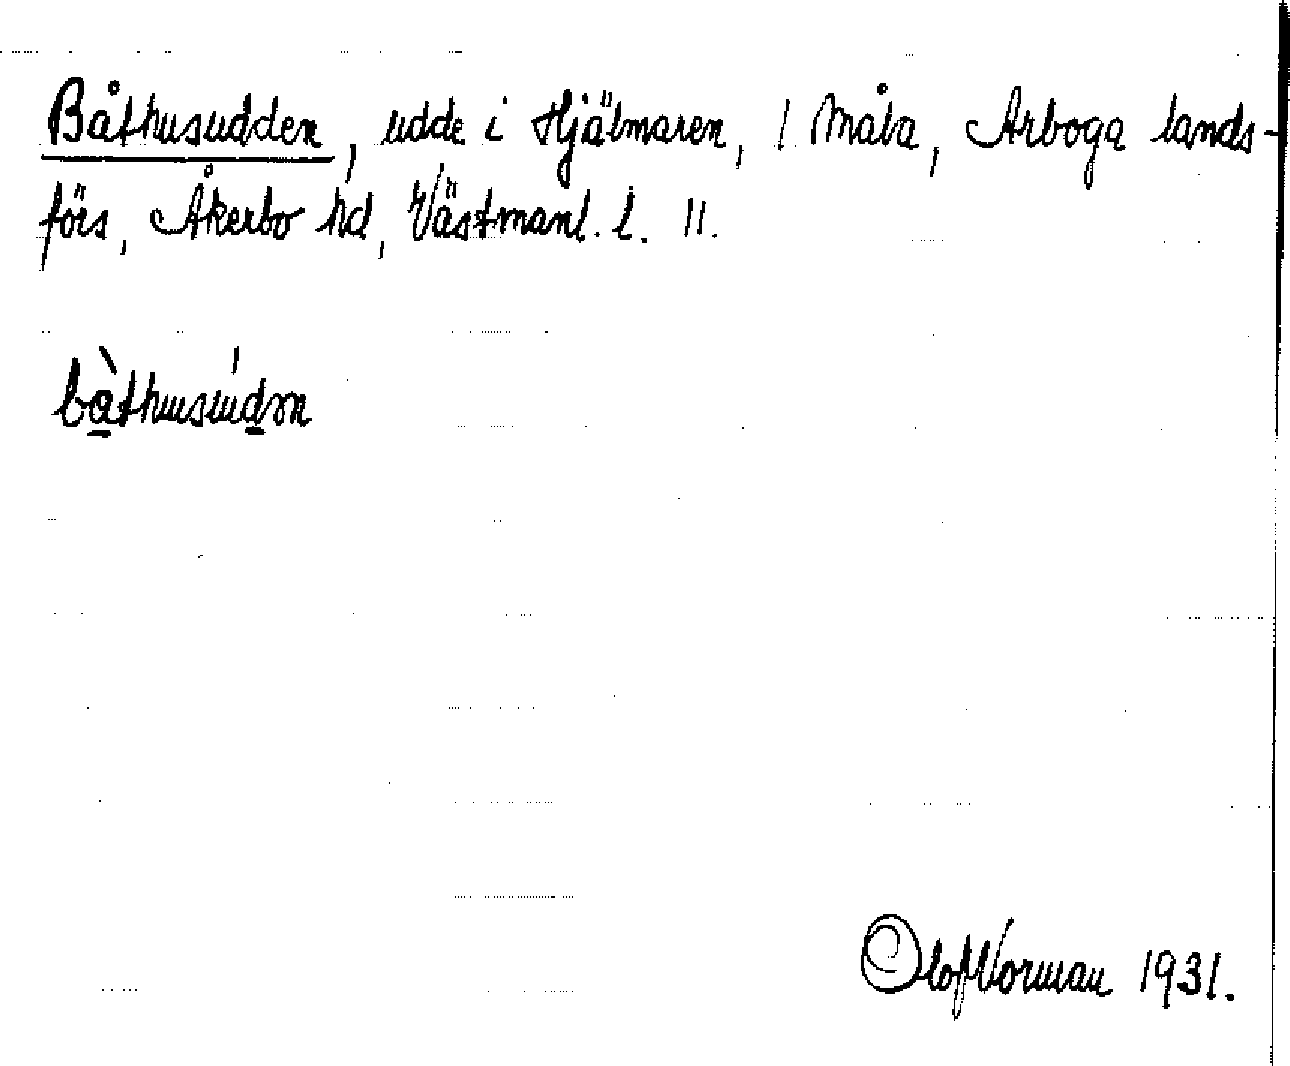 Båthusudden, udde i Hjälmaren, 1 Måla, Arboga lands-
förs, Åkerbo hd, Västmanl. l. 11.
bàthusúdn
Olof Norman 1931.